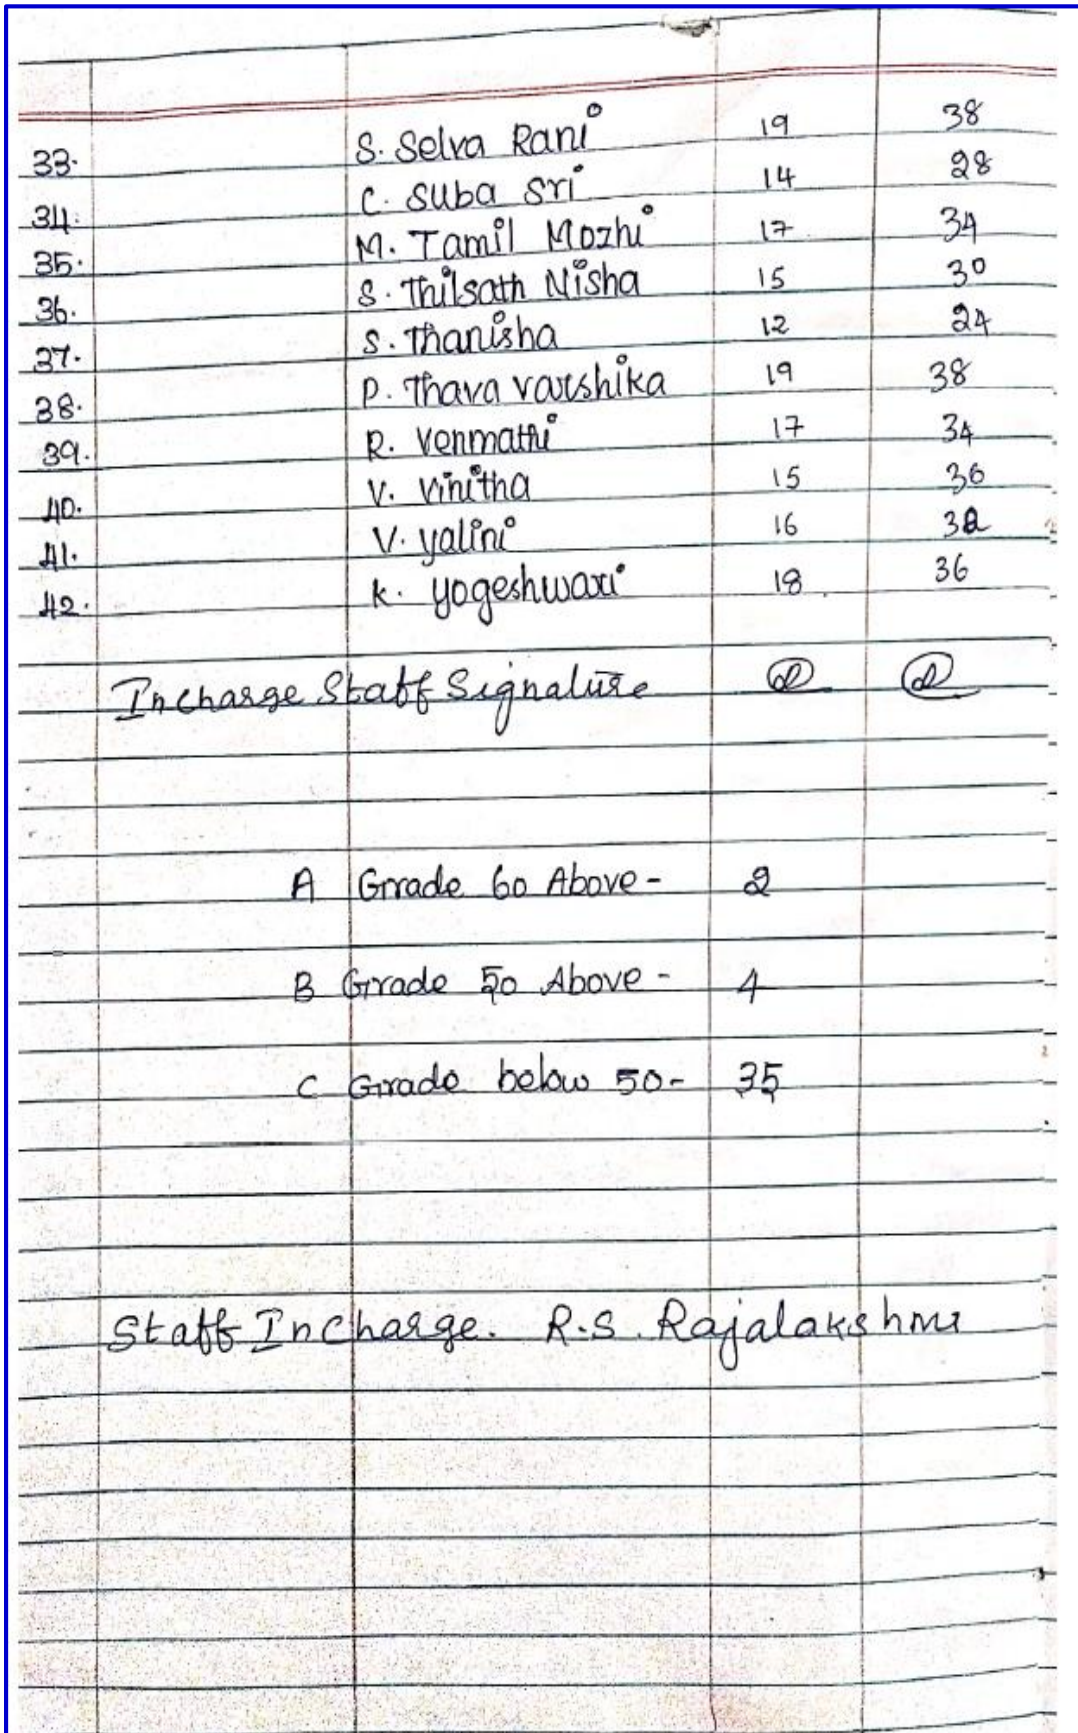 33. S. Selva Rani 19 38
34. C. Suba Sri 14 28
35. M. Tamil Mozhi 17 34
36. S. Thilsath Nisha 15 30
37. S. Thanisha 12 24
38. P. Thava varshika 19 38
39. R. Venmathi 17 34
40. V. Vinitha 15 30
41. V. yalini 16 32
42. K. yogeshwari 18 36
Incharge Staff Signature
A Grade 60 Above - 2
B Grade 50 Above - 4
C Grade below 50 - 35
Staff Incharge. R.S. Rajalakshmi